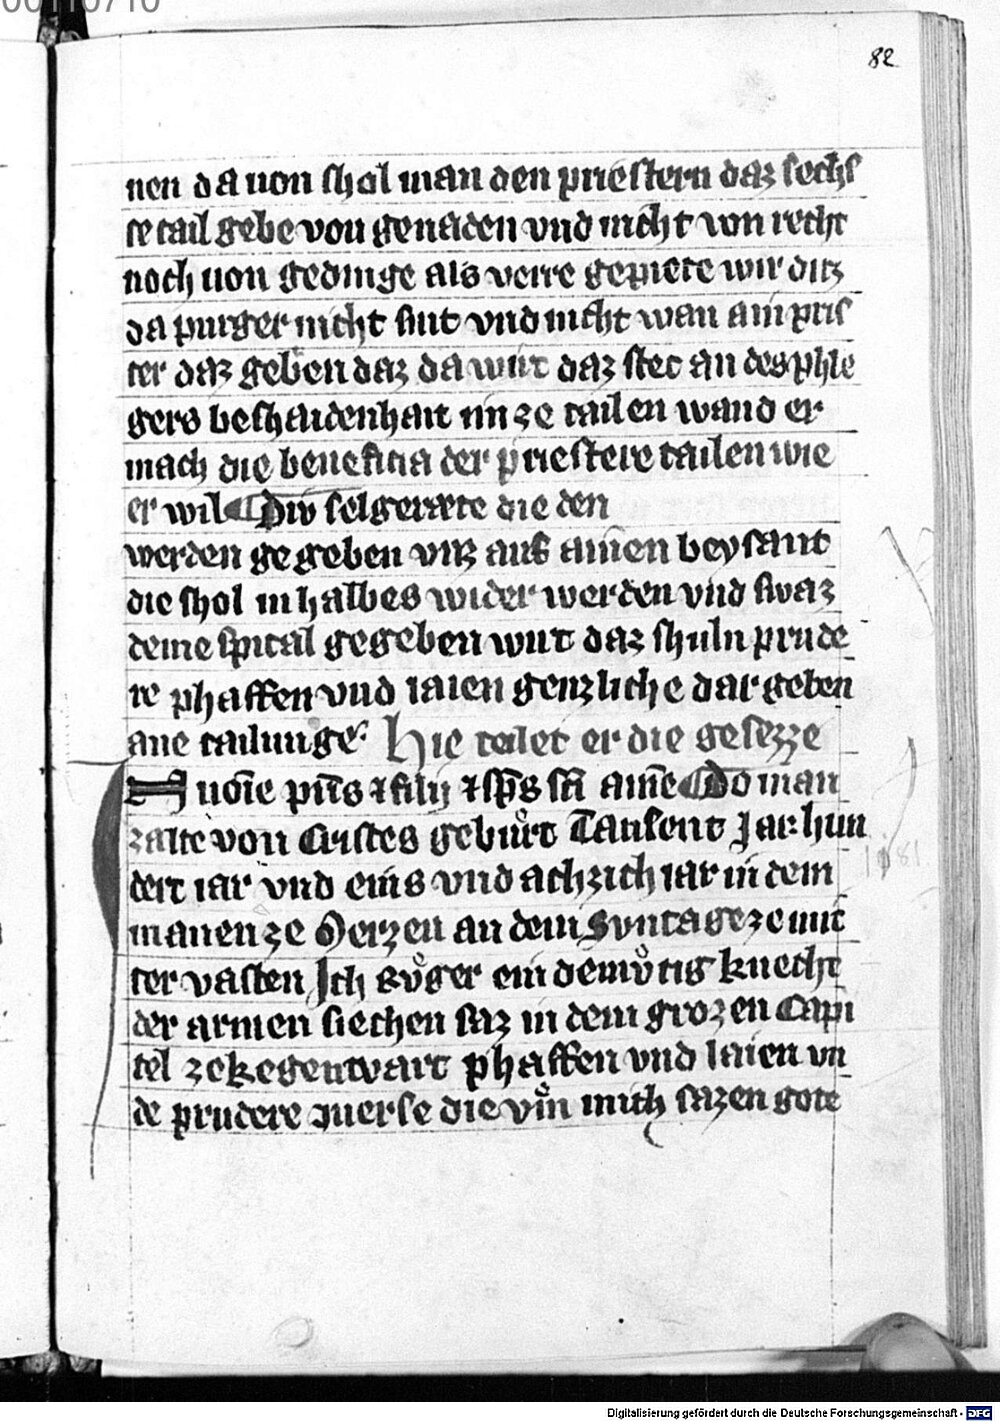 82
nen da uon shol man den priestern daz sechs
te tail gebe von genaden vnd nicht von recht
noch uon gedinge als verre gepiete wir ditz
da purger nicht sint vnd nicht wan ain pris
ter daz geben daz da wirt daz stet an des phle
gers beshaidenhait im ze tailen wand er
mach die beneficia der priestere tailen wie
er wil Div selgeræte die den
werden ge geben vntz auf ainen beysant
die shol in halbes wider werden vnd swaz
deme spital gegeben wirt daz shuln prude
re phaffen vnd laien genzliche dar geben
ane tailunge. Hie teilet er die gesezze
In noīe pat̄s ⁊ filij ⁊ sp̄s sc̄i amē Do man
zalte von Cristes gebůrt Tausent Jar hun
dert iar vnd eins vnd achzich iar in dem
manen ze Merzen an dem Svntage ze mit
ter vasten Jch Růger ein demůtig knecht
der armen siechen saz in dem grozen Capi
tel ze kegenwart phaffen vnd laien vn
de prudere zuerse die vm̊ mich sazen gote
1181
Digitalisierung gefördert durch die Deutsche Forschungsgemeinschaft - DFG